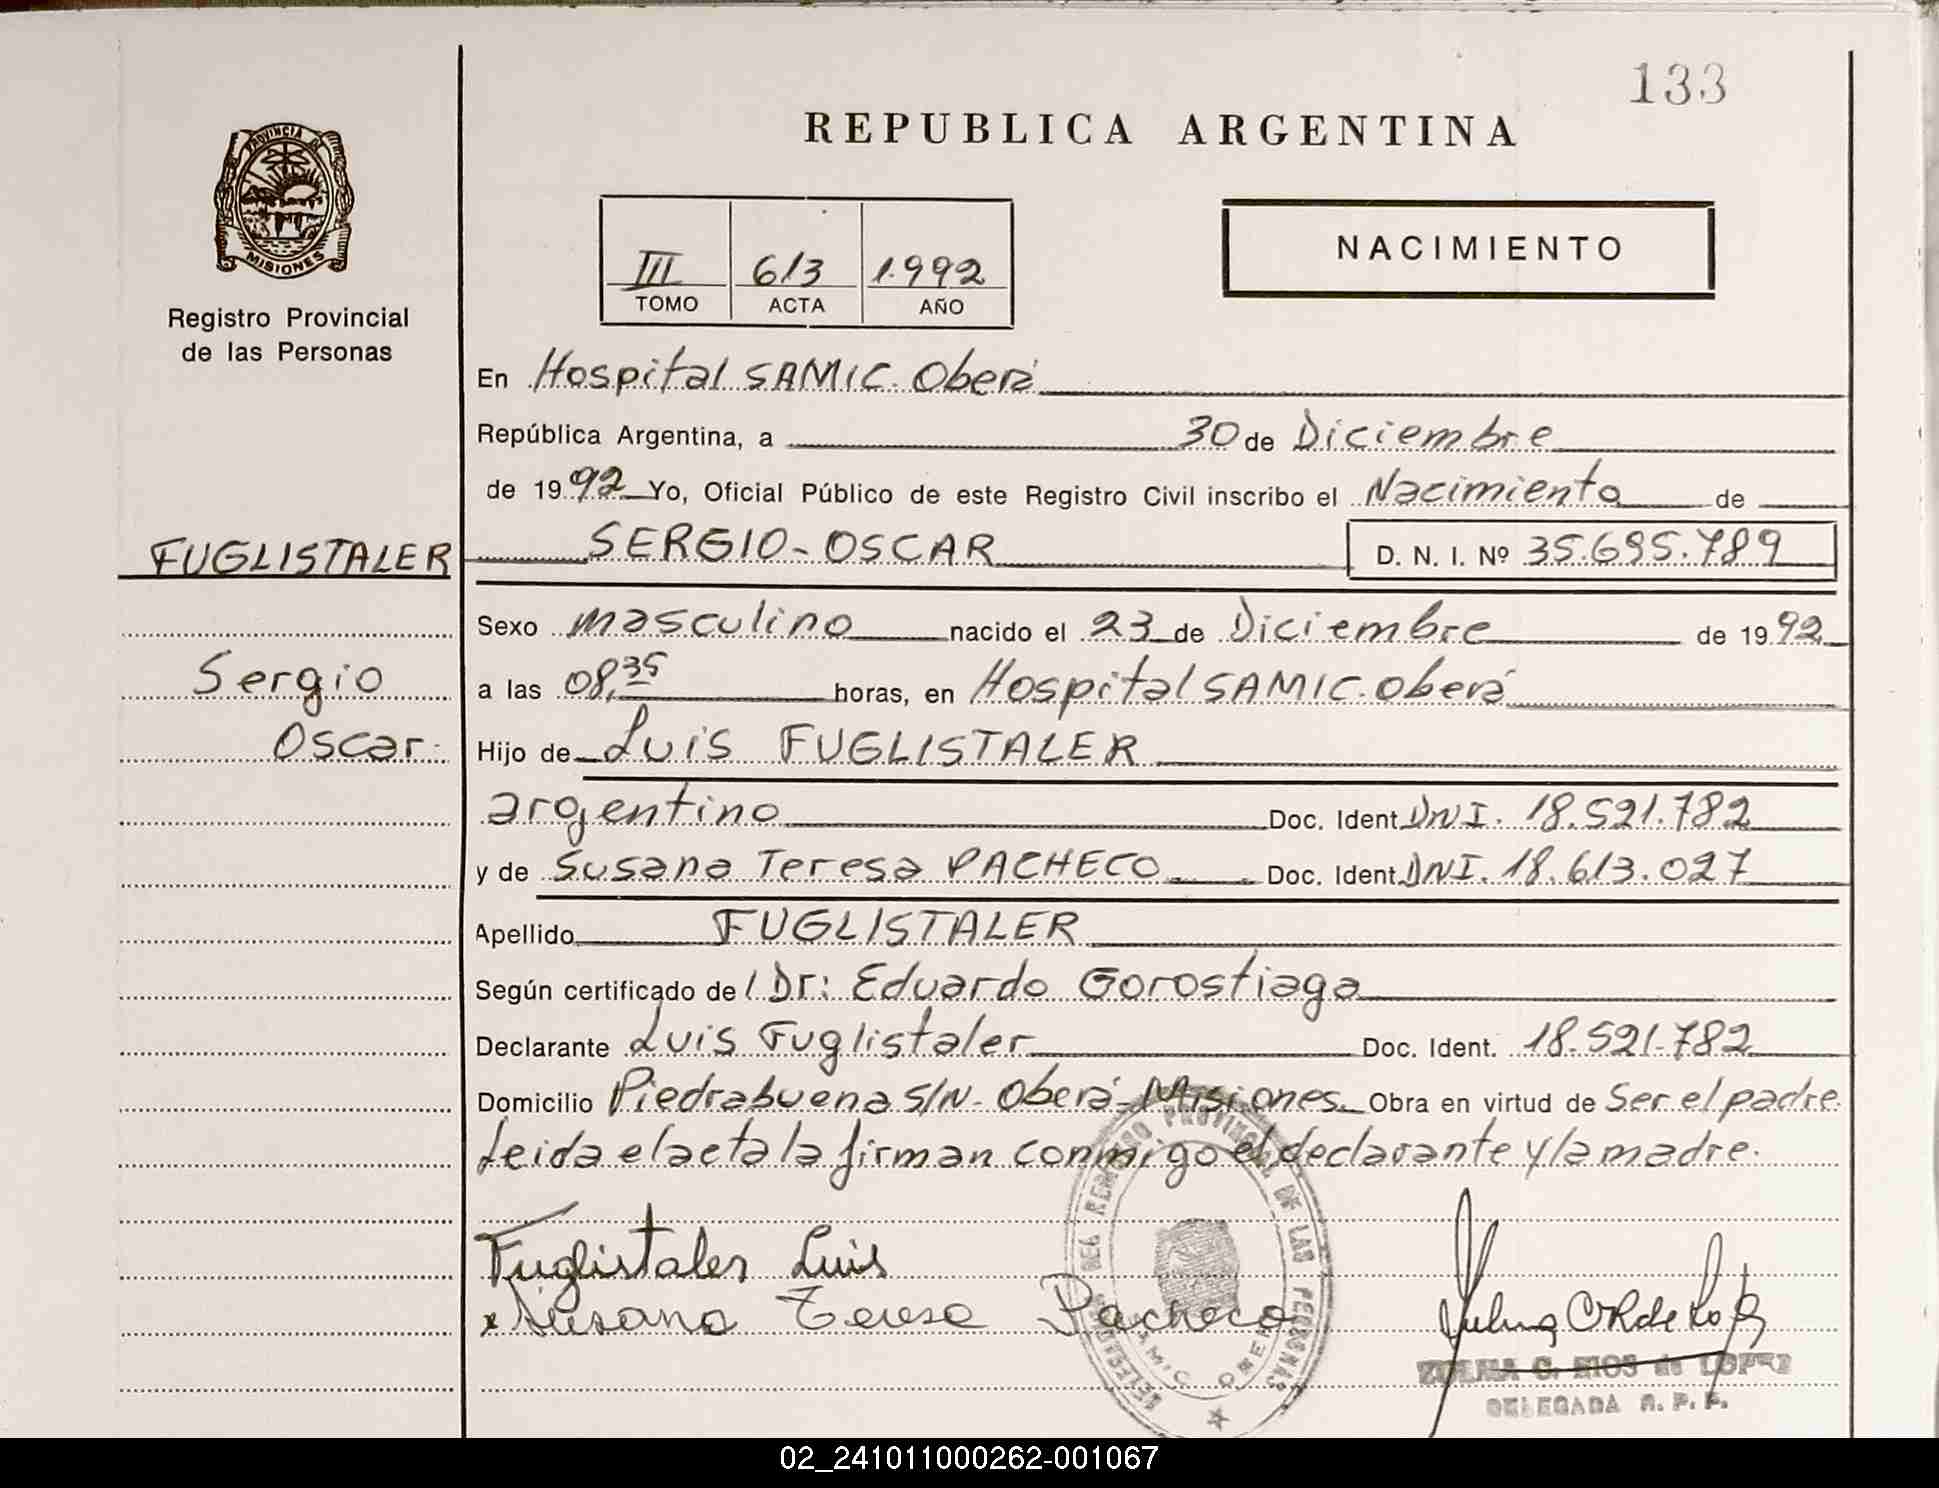 133
REPUBLICA ARGENTINA
PROVINCIA DE
MISIONES
Registro Provincial
de las Personas
III 613 1.992
TOMO ACTA AÑO
NACIMIENTO
En Hospital SAMIC. Oberá
República Argentina, a 30 de Diciembre
de 1992 Yo, Oficial Público de este Registro Civil inscribo el Nacimiento de
FUGLISTALER SERGIO-OSCAR D. N. I. Nº 35.695.789
Sexo masculino nacido el 23 de Diciembre de 1992
Sergio a las 08,35 horas, en Hospital SAMIC. Oberá
Oscar. Hijo de Luis FUGLISTALER
argentino Doc. Ident. DNI. 18.521.782
y de Susana Teresa PACHECO Doc. Ident. DNI. 18.613.027
Apellido FUGLISTALER
Según certificado de l Dr: Eduardo Gorostiaga
Declarante Luis Fuglistaler Doc. Ident. 18.521.782
Domicilio Piedrabuena S/N- Oberá-Misiones. Obra en virtud de Ser el padre.
Leida el acta la firman conmigo el declarante y la madre.
Fuglistaler Luis
x Susana Teresa Pacheco
REGISTRO PROVINCIAL DE LAS PERSONAS
SAMIC OBERA
ZULMA C. RIOS de LOPEZ
DELEGADA R. P. P.
02_241011000262-001067